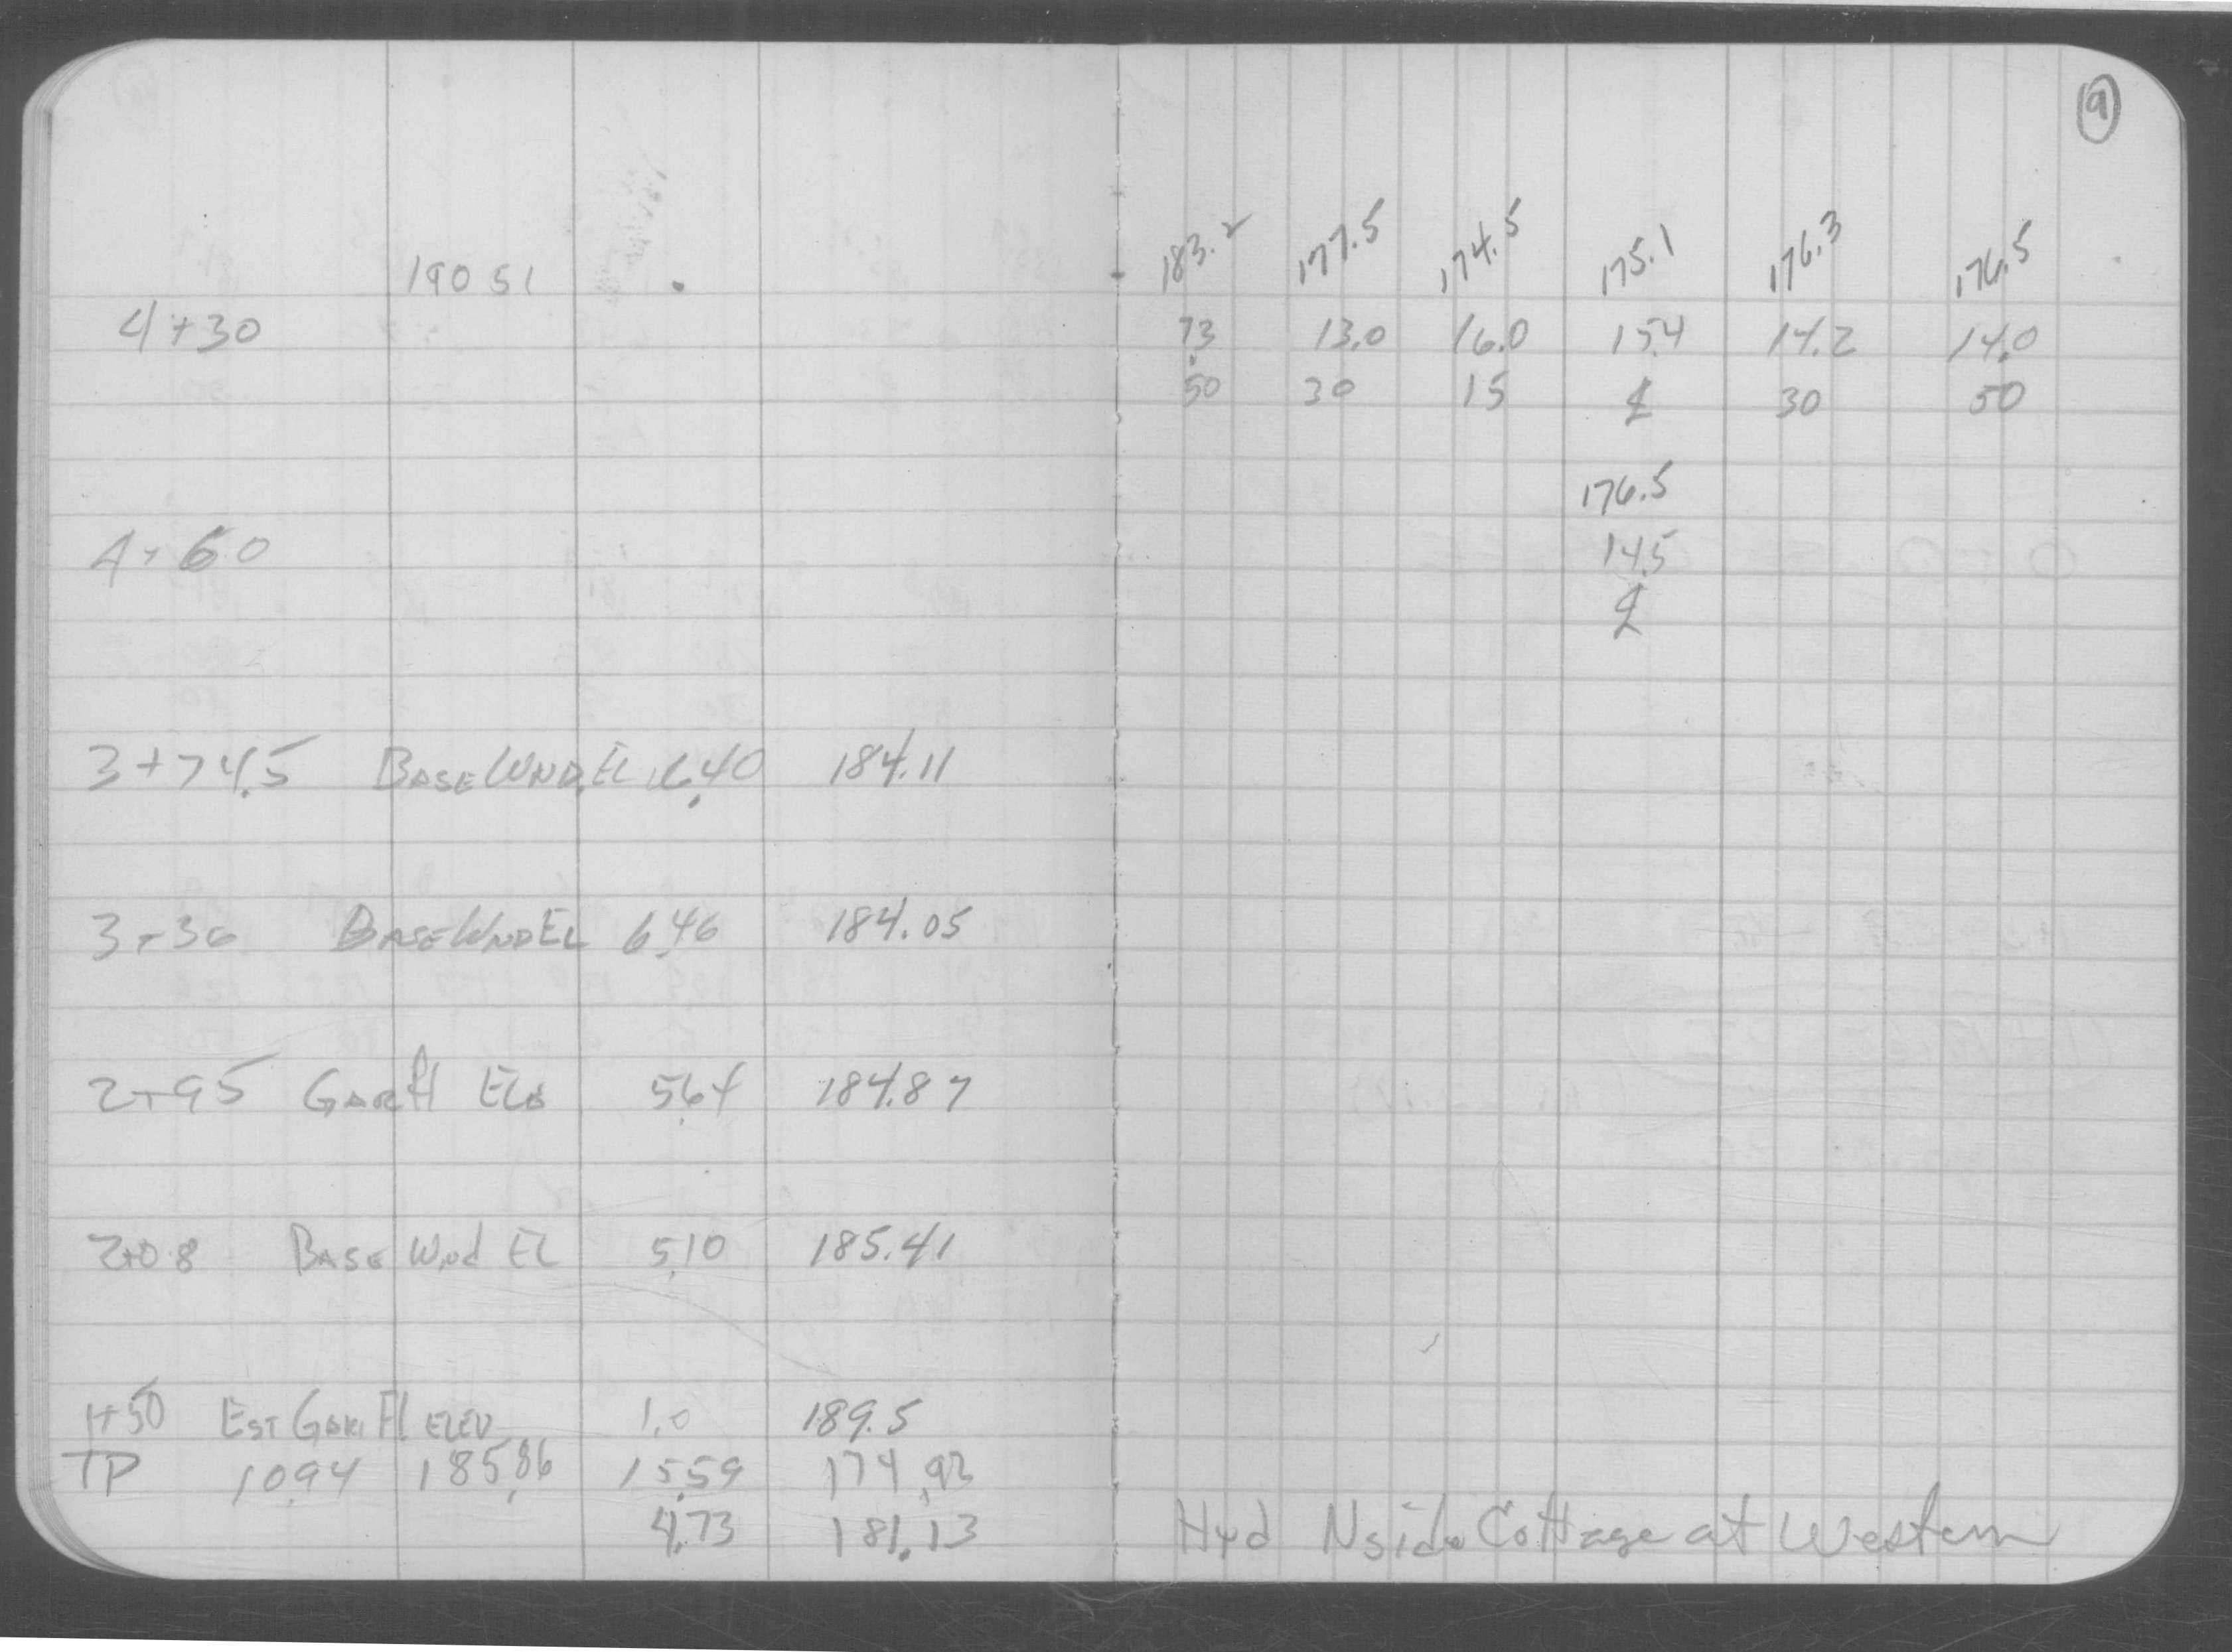 9
190 51
183.2 177.5 174.5 175.1 176.3 176.5
4+30 7.3 13.0 16.0 15.4 14.2 14.0
50 30 15 ℄ 30 50
176.5
4+60 14.5
℄
3+74.5 BASE WND. EL 6.40 184.11
BASE WND EL 6.46 184.05
2+95 GAR Fl EL 5.64 184.87
2+08 BASE Wnd EL 5.10 185.41
1+50 EST GAR Fl ELEV 1.0 189.5
TP 10.94 185.86 15.59 174.92
4.73 181.13 Hyd N side Cottage at Western